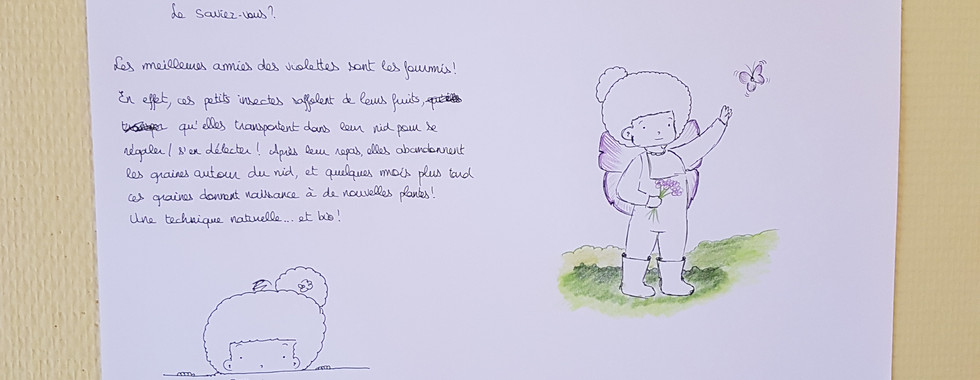 Le Saviez-vous?
Les meilleures amies des violettes sont les fourmis!
En effet, ces petits insectes raffolent de leurs fruits,
qu'elles transportent dans leur nid pour se
régaler / s'en délecter! Après leur repas, elles abandonnent
les graines autour du nid, et quelques mois plus tard
ces graines donnent naissance à de nouvelles plantes!
Une technique naturelle... et bio!